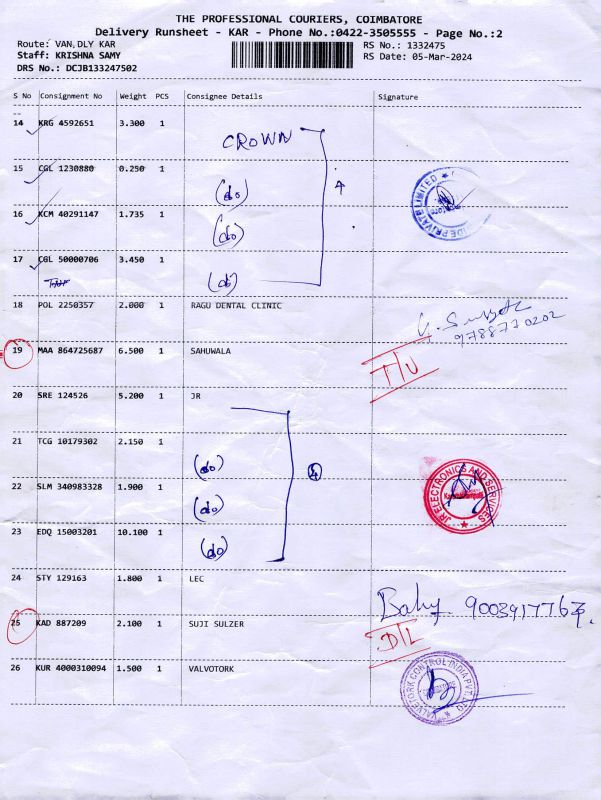 THE PROFESSIONAL COURIERS, COIMBATORE
Delivery Runsheet - KAR - Phone No.:0422-3505555 - Page No.:2
Route: VAN,DLY KAR RS No.: 1332475
Staff: KRISHNA SAMY RS Date: 05-Mar-2024
DRS No.: DCJB133247502
S No Consignment No Weight PCS Consignee Details Signature
14 KRG 4592651 3.300 1 CROWN
15 CGL 1230880 0.250 1 (do)
4
16 KCM 40291147 1.735 1 (do)
PRIVATE LIMITED
17 CGL 50000706 3.450 1 (do)
18 POL 2250357 2.000 1 RAGU DENTAL CLINIC
9788770202
19 MAA 864725687 6.500 1 SAHUWALA
20 SRE 124526 5.200 1 JR
21 TCG 10179302 2.150 1 (do)
4
22 SLM 340983328 1.900 1 (do)
JR ELECTRONICS AND SERVICES
23 EDQ 15003201 10.100 1 (do)
24 STY 129163 1.800 1 LEC
9003917763
25 KAD 887209 2.100 1 SUJI SULZER
DTL
26 KUR 4000310094 1.500 1 VALVOTORK
VALVETORK CONTROL INDIA PVT. LTD